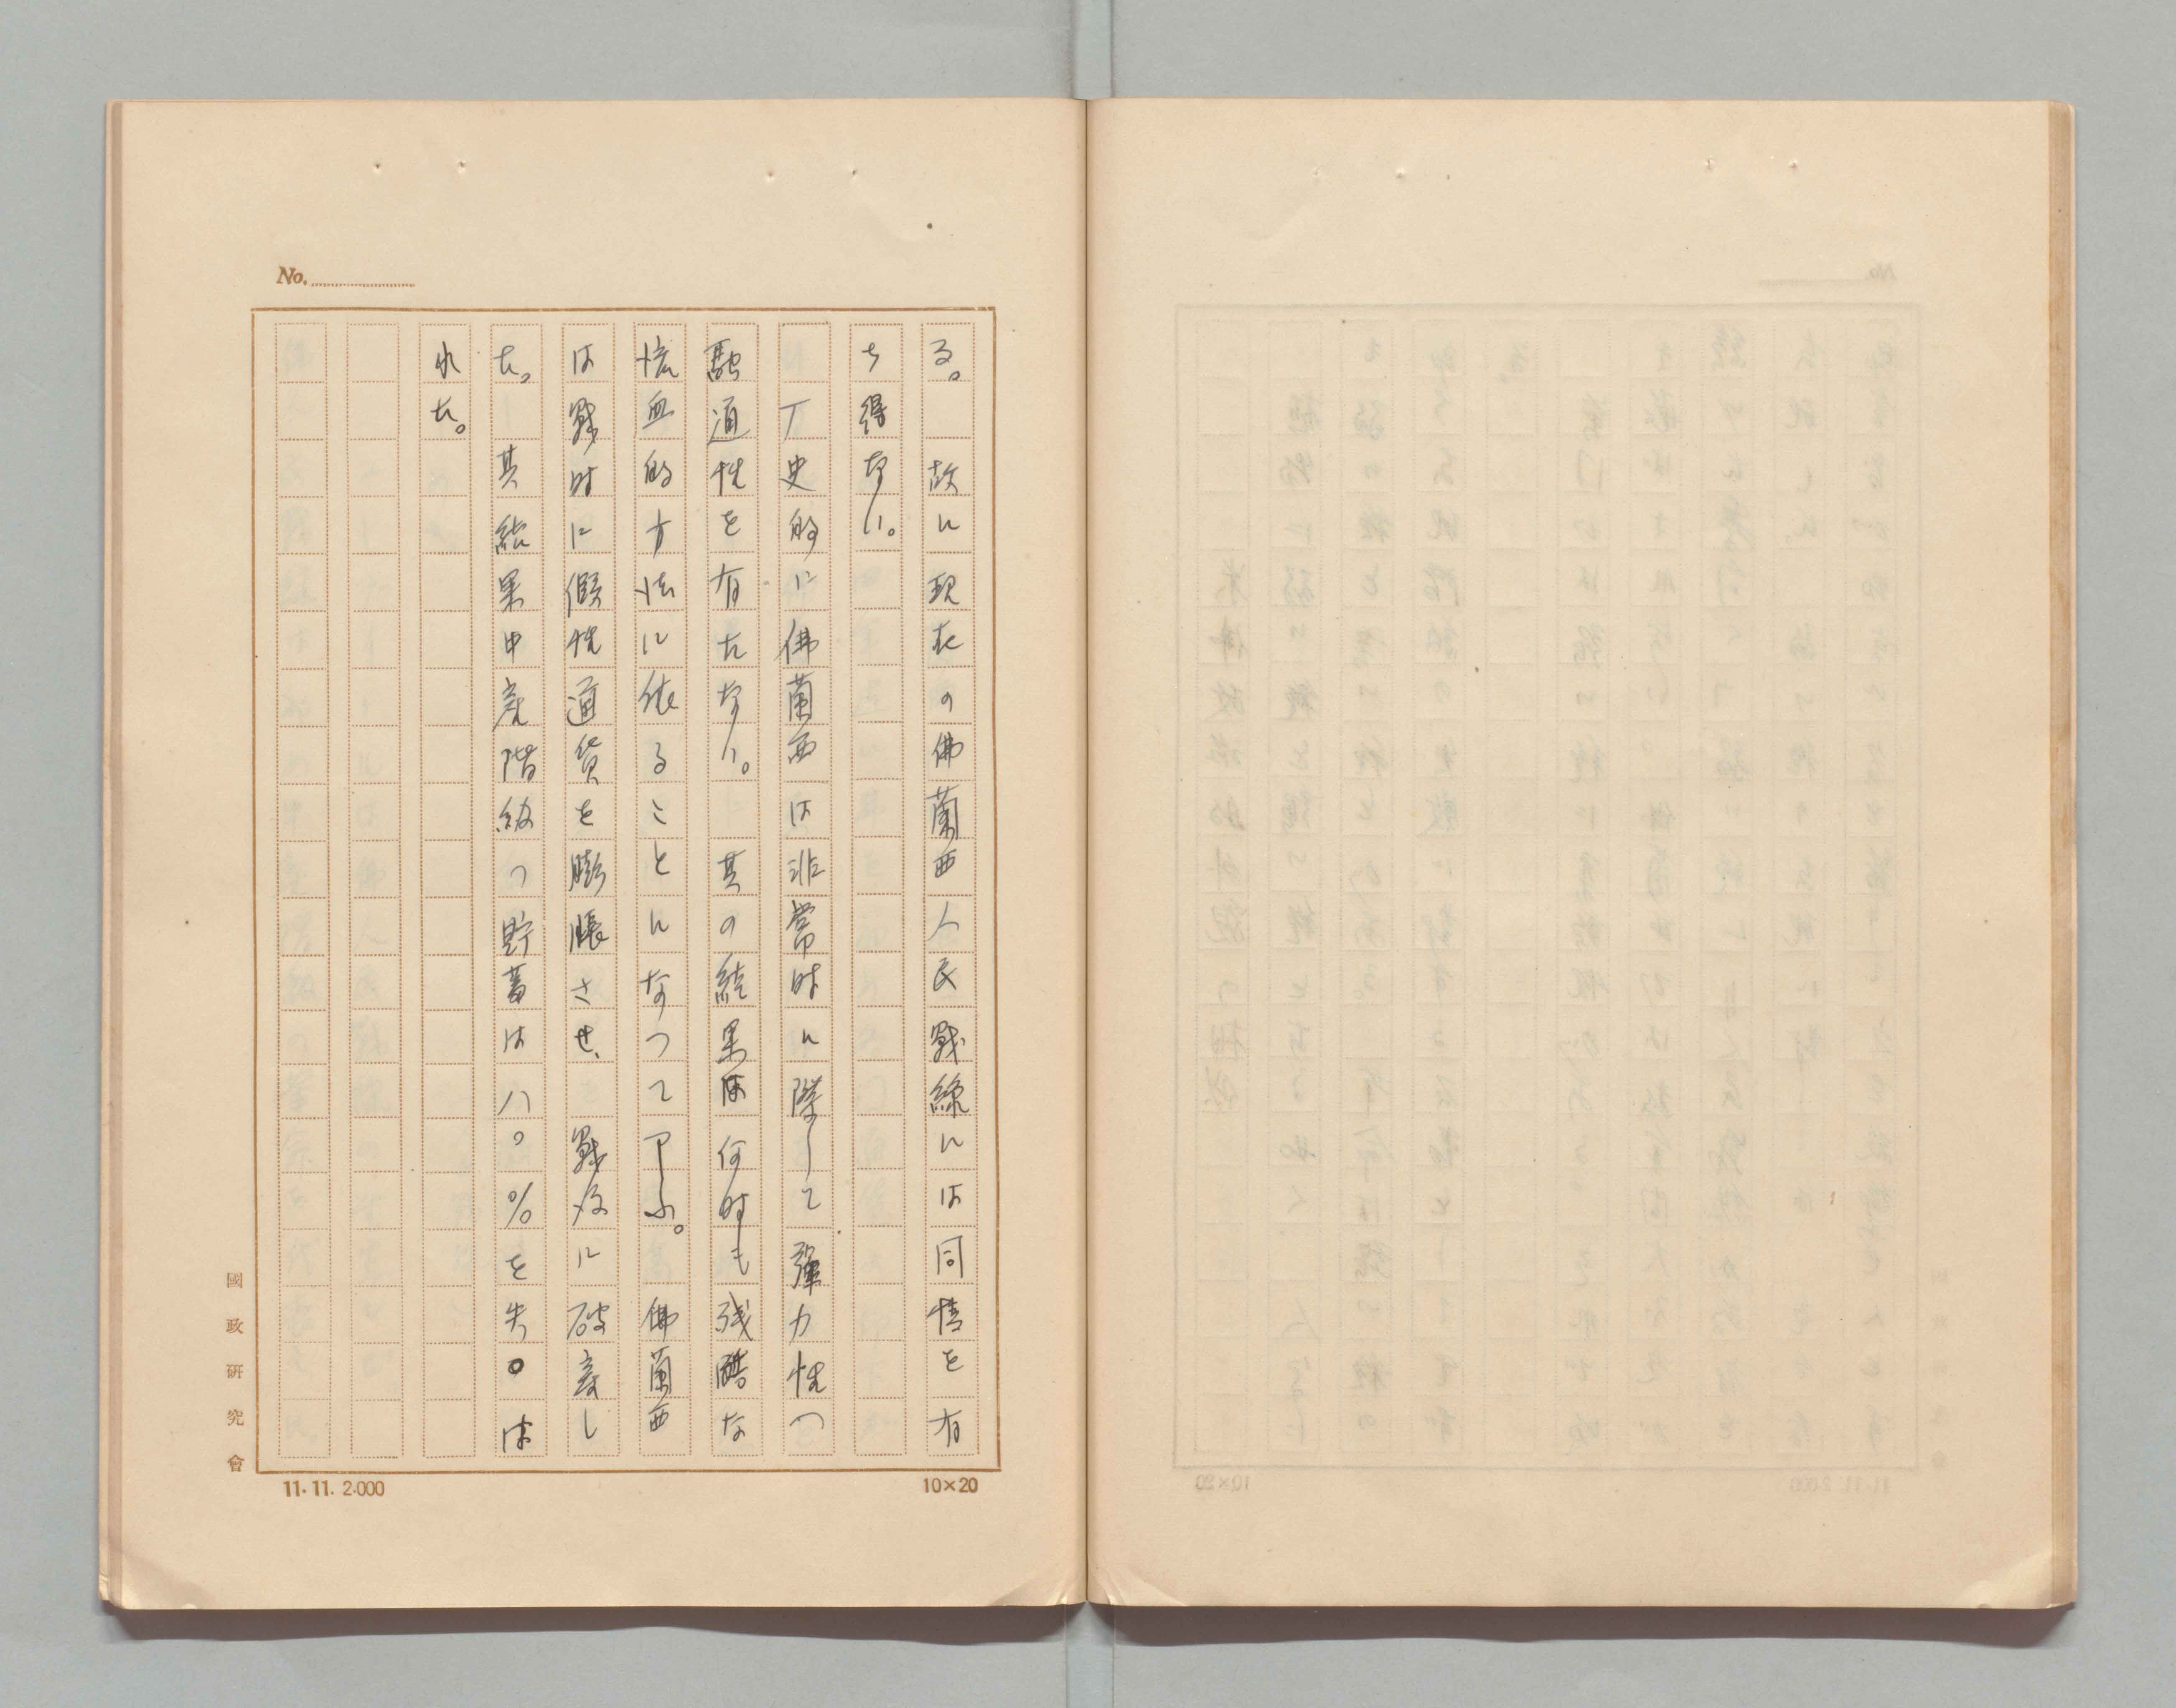 No.
る。 故に現在の佛蘭西人民戰線には同情を有
ち得ない。
丁史的に佛蘭西は非常時に際して彈力性つ
融通性を有たない。 其の結果は何時も残酷な
流血的方法に依ることになつて了ふ。 佛蘭西
は戰時に假性通貨を膨脹させ、 戰後に破棄し
た。 其結果中産階級つ貯蓄は八〇%を失ºは
れた。
國政研究會
11.11. 2.000
10×20